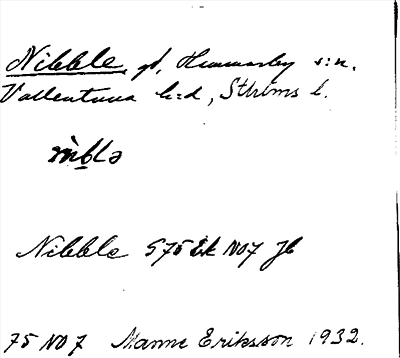 Nibble, gd, Hammarby s:n.
Vallentuna h:d, Sthlms l.
nìblə
Nibble S75 Ek NO7 Jb
75 NO 7 Manne Eriksson 1932.